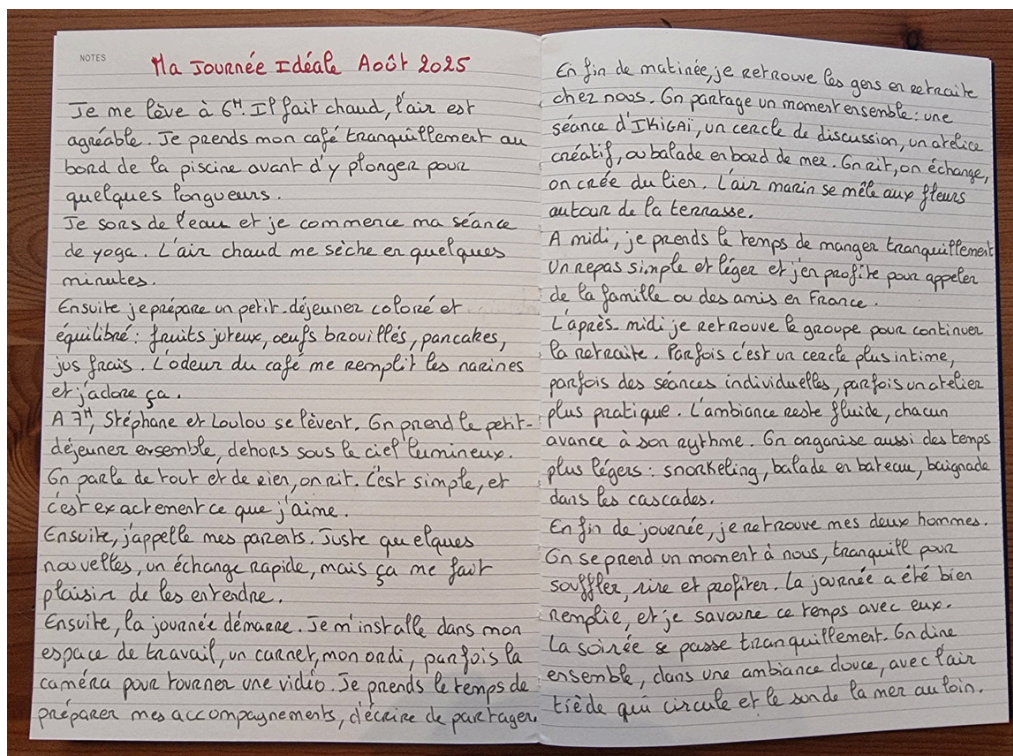 NOTES
Ma Journée Idéale Août 2025
Je me lève à 6H. Il fait chaud, l'air est
agréable. Je prends mon café tranquillement au
bord de la piscine avant d'y plonger pour
quelques longueurs.
Je sors de l'eau et je commence ma séance
de yoga. L'air chaud me sèche en quelques
minutes.
Ensuite je prépare un petit-déjeuner coloré et
équilibré : fruits juteux, oeufs brouillés, pancakes,
jus frais. L'odeur du café me remplit les narines
et j'adore ça.
A 7H, Stéphane et Loulou se lèvent. On prend le petit-
déjeuner ensemble, dehors sous le ciel lumineux.
On parle de tout et de rien, on rit. C'est simple, et
c'est exactement ce que j'aime.
Ensuite, j'appelle mes parents. Juste quelques
nouvelles, un échange rapide, mais ça me fait
plaisir de les entendre.
Ensuite, la journée démarre. Je m'installe dans mon
espace de travail, un carnet, mon ordi, parfois la
caméra pour tourner une vidéo. Je prends le temps de
préparer mes accompagnements, d'écrire de partager.
En fin de matinée, je retrouve les gens en retraite
chez nous. On partage un moment ensemble : une
séance d'IKIGAÏ, un cercle de discussion, un atelier
créatif, ou balade en bord de mer. On rit, on échange,
on crée du lien. L'air marin se mêle aux fleurs
autour de la terrasse.
A midi, je prends le temps de manger tranquillement
Un repas simple et léger et j'en profite pour appeler
de la famille ou des amis en France.
L'après-midi je retrouve le groupe pour continuer
la retraite. Parfois c'est un cercle plus intime,
parfois des séances individuelles, parfois un atelier
plus pratique. L'ambiance reste fluide, chacun
avance à son rythme. On organise aussi des temps
plus légers : snorkeling, balade en bateau, baignade
dans les cascades.
En fin de journée, je retrouve mes deux hommes.
On se prend un moment à nous, tranquill pour
souffler, rire et profiter. La journée a été bien
remplie, et je savoure ce temps avec eux.
La soirée se passe tranquillement. On dine
ensemble, dans une ambiance douce, avec l'air
tiède qui circule et le son de la mer au loin.